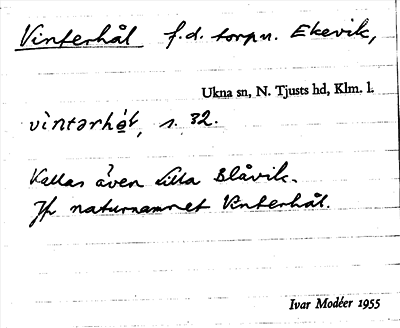 Vinterhål f.d. torp u. Ekevik,
Ukna sn, N. Tjusts hd, Klm. l.
s. 32.
Kallas även Lilla Blåvik.
Jfr naturnamnet Vinterhål.
Ivar Modéer 1955